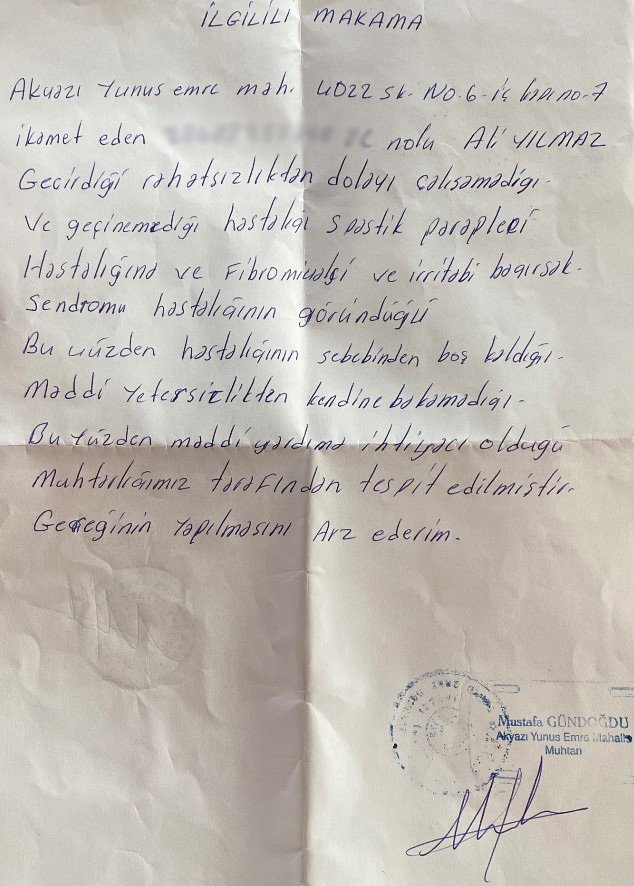 İLGİLİLİ MAKAMA
Akyazı Yunus emre mah. 4022 sk. No.6-iç kapı no-7
ikamet eden nolu Ali YILMAZ
Geçirdiği rahatsızlıktan dolayı çalışamadığı.
Ve geçinemediği hastalığı Spastik parapleji
Hastalığına ve Fibromiyalji ve irritabi bağırsak.
Sendromu hastalığının göründüğü
Bu yüzden hastalığının sebebinden boş kaldığı.
Maddi Yetersizlikten kendine bakamadığı.
Bu yüzden maddi yardıma ihtiyacı olduğu
Muhtarlığımız tarafından tespit edilmiştir.
Gereğinin Yapılmasını Arz ederim.
Mustafa GÜNDOĞDU
Akyazı Yunus Emre Mahalle
Muhtarı